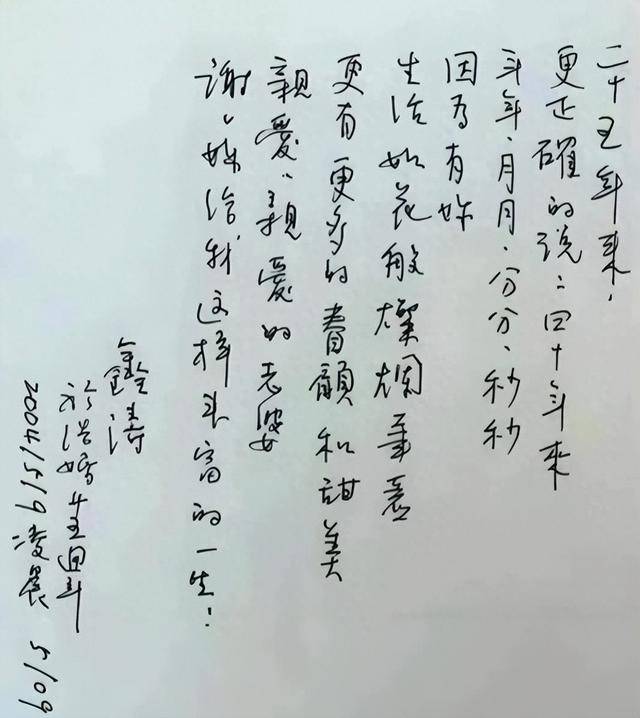 二十五年來，
更正確的說：四十年來
年年、月月、分分、秒秒
因為有妳
生活如花般燦爛
更有更多的眷顧和甜美
親愛、親愛的老婆
謝謝妳給我这樣丰富的一生！
鑫濤
於結婚廿五週年
2004/5/9 凌晨 5/09